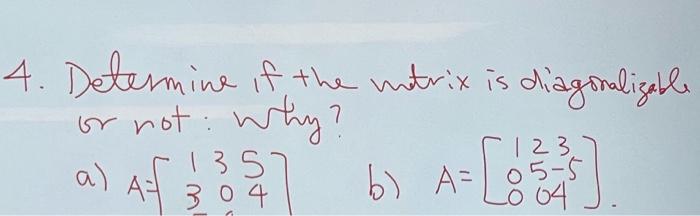 4. Determine if the matrix is diagonalizable
or not: Why?
a) A=[ 1 3 5
3 0 4 ]
b) A= [ 1 2 3
0 5 -5
0 0 4 ].